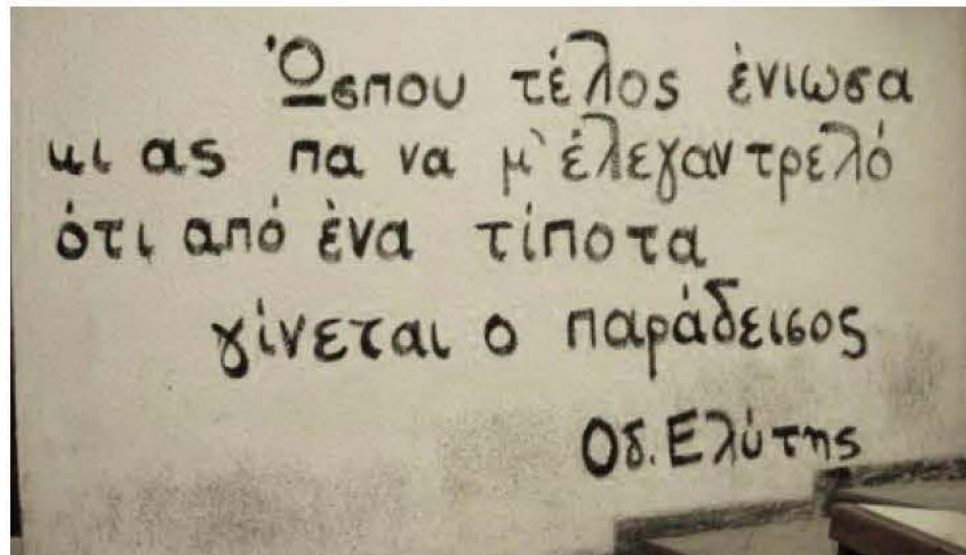 Ώσπου τέλος ένιωσα
κι ας πα να μ' έλεγαν τρελό
ότι από ένα τίποτα
γίνεται ο παράδεισος
Οδ. Ελύτης